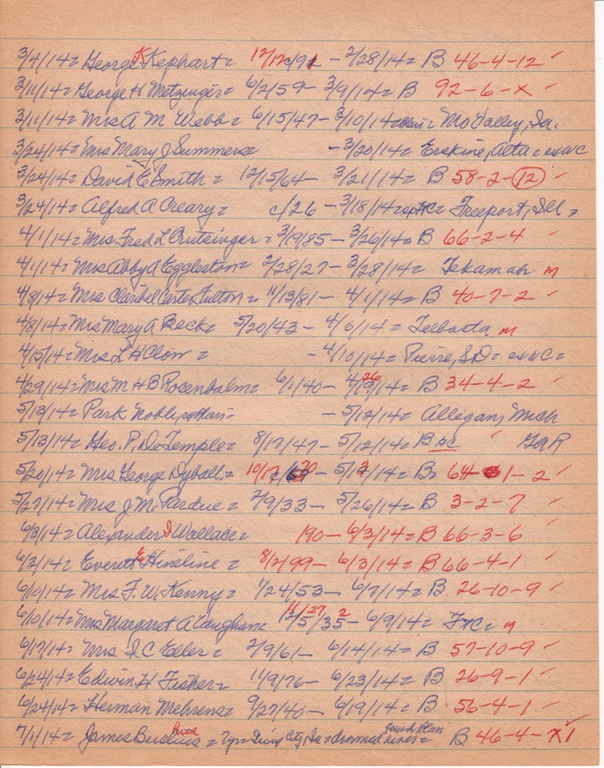 3/4/14 = George K Kephart = 12/12/91 - 2/28/14 = B 46-4-12 ✓
3/11/14 = George H Metzinger = 6/2/59 - 3/9/14 = B 92-6-X ✓
3/11/14 = Mrs A M Webb = 6/15/47 - 3/10/14 = Mo Valley, Ia.
3/24/14 = Mrs Mary J Summers = - 3/20/14 = Erskine, Alta =
3/24/14 = David E Smith = 12/15/64 - 3/21/14 = B 58-2-12 ✓
3/24/14 = Alfred A Creary = c/26 - 3/18/14 = Freeport, Ill =
4/1/14 = Mrs Fred L Crutsinger = 3/19/85 - 3/26/14 = B 66-2-4 ✓
4/1/14 = Mrs Abby A Eggleston = 2/28/27 - 3/28/14 = Tekamah m
4/8/14 = Mrs Claribel Carter Fulton = 11/13/81 - 4/1/14 = B 40-7-2 ✓
4/8/14 = Mrs Mary A Beck = 5/20/43 - 4/6/14 = Telbasta m
4/15/14 = Mrs L H Clow = - 4/10/14 = Pierre, S.D. =
4/29/14 = Mrs M H B Rosenbalm = 6/1/40 - 4/26/14 = B 34-4-2 ✓
5/13/14 = Park Noble, - 5/12/14 = Allegan, Mich
5/13/14 = Geo. P. DeTemple = 8/17/47 - 5/12/14 = B BC ✓ GAR
5/20/14 = Mrs George Dyball = 10/12/70 - 5/13/14 = B = 64-1-2 ✓
5/27/14 = Mrs J M Pardue = 2/9/33 - 5/26/14 = B 3-2-7 ✓
6/3/14 = Alexander J Wallace = 190 - 6/2/14 = B 66-3-6 ✓
6/3/14 = Everett E Hineline = 8/2/99 - 6/3/14 = B 66-4-1 ✓
6/10/14 = Mrs F. W. Kenny = 1/24/53 - 6/7/14 = B 26-10-9 ✓
6/10/14 = Mrs Margaret A Vaughan = 12/5/35 11/27 2 - 6/9/14 = FtC = m
6/17/14 = Mrs I C Eller = 2/9/61 - 6/14/14 = B 57-10-9 ✓
6/24/14 = Edwin H Fisher = 11/9/76 - 6/23/14 = B 26-9-1 ✓
6/24/14 = Herman Mehrens = 9/27/40 - 6/19/14 = B 56-4-1 ✓
7/1/14 = James = City, Ia = drowned river = B 46-4-X1 ✓